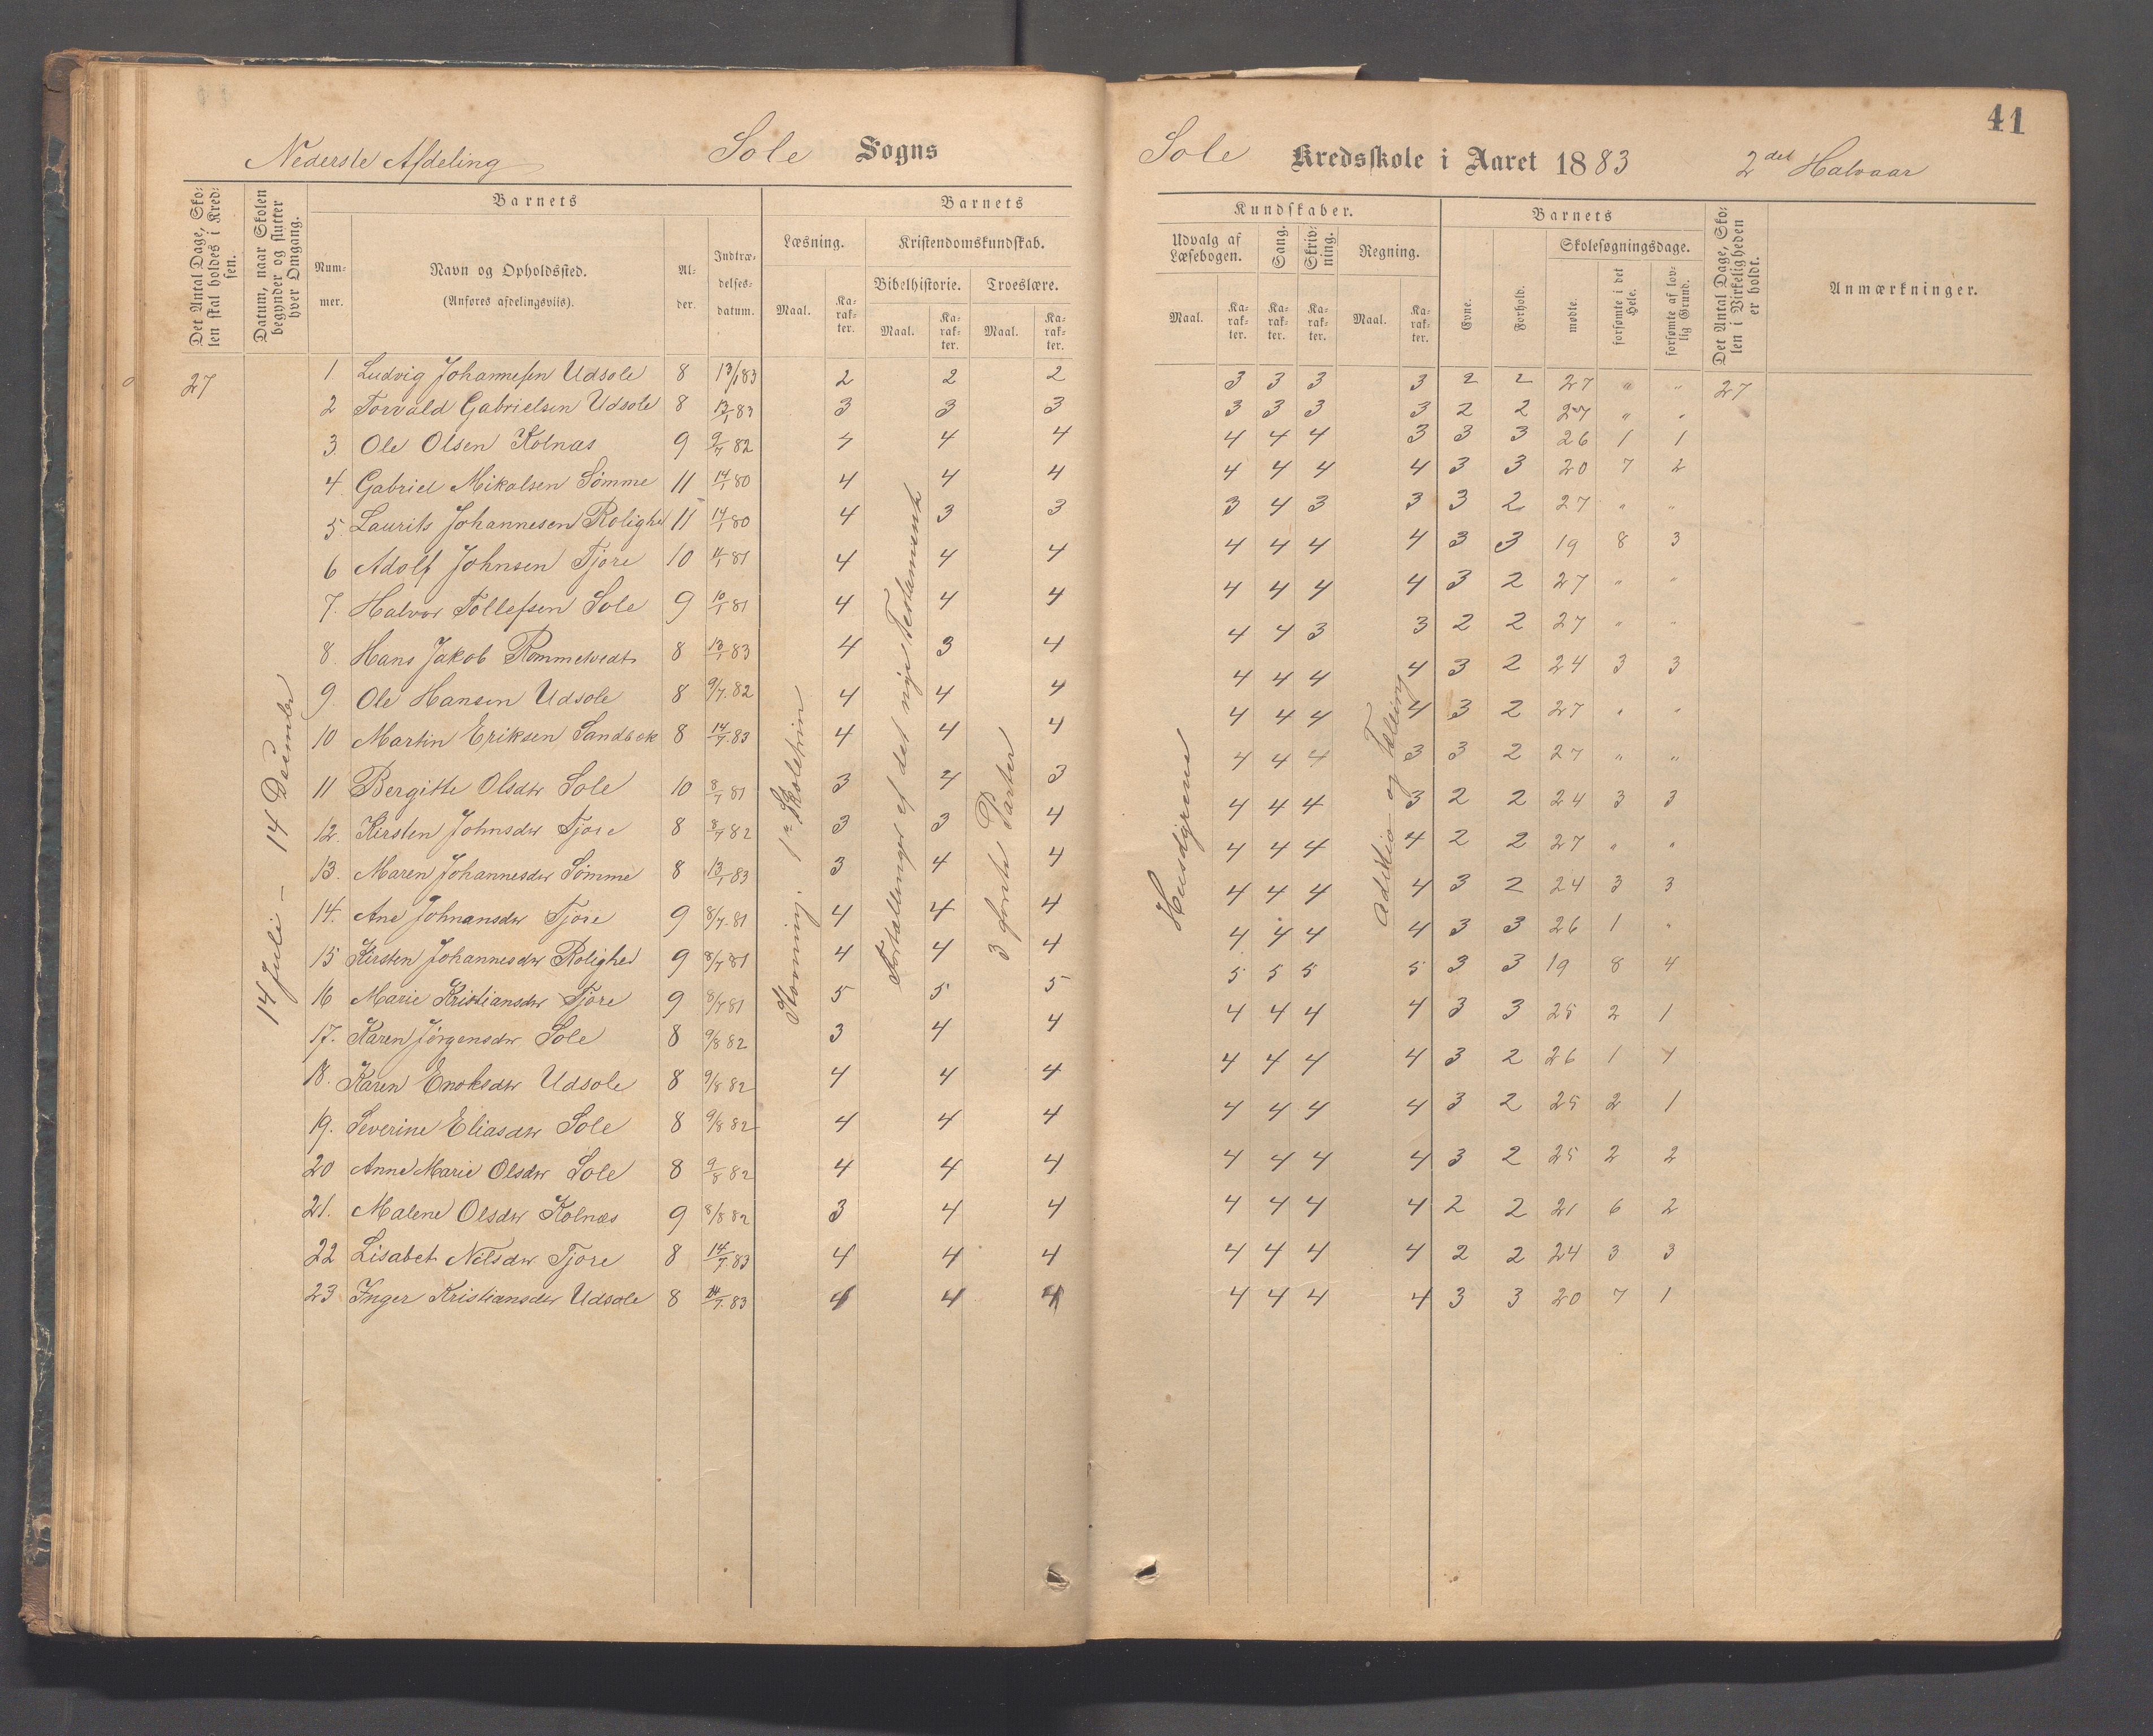 41
Nederste Afdeling Sole Sogns Sole Kredsskole i Aaret 1883 2det Halvaar
Det Antal Dage, Skolen skal holdes i Kredsen.
Datum, naar Skolen begynder og slutter hver Omgang.
Barnets
Nummer.
Navn og Opholdssted.
(Anføres afdelingsviis).
Alder.
Indtrædelsesdatum.
Barnets Kundskaber.
Læsning.
Maal. Karakter.
Kristendomskundskab.
Bibelhistorie. Troeslære.
Maal. Karakter. Maal. Karakter.
Udvalg af Læsebogen.
Maal. Karakter.
Sang. Karakter.
Skrivning. Karakter.
Regning.
Maal. Karakter.
Barnets
Evne. Forhold.
Skolesøgningsdage.
mødte. forsømte i det Hele. forsømte af lovlig Grund.
Det Antal Dage, Skolen i Virkeligheden er holdt.
Anmærkninger.
27
14 Juli – 14 December
Stavning. 1ste Skoletrin
Fortællinger af det nye Testamente
3 første Parter
Husdyrene
Addition og Tælling
1 Ludvig Johannesen Udsole 8 13/1 83 2 2 2 3 3 3 3 2 2 27 " " 27
2 Torvald Gabrielsen Udsole 8 13/1 83 3 3 3 3 3 3 3 2 2 27 " "
3. Ole Olsen Kolnæs 9 9/7 82 4 4 4 4 4 4 3 3 3 26 1 1
4. Gabriel Mikalsen Sømme 11 14/1 80 4 4 4 4 4 4 4 3 3 20 7 2
5. Laurits Johannesen Rolighe 11 14/1 80 4 3 3 3 4 3 3 3 2 27 " "
6 Adolf Johnsen Tjore 10 11/1 81 4 4 4 4 4 4 4 3 3 19 8 3
7. Halvor Tollefsen Sole 9 10/1 81 4 4 4 4 4 4 4 3 2 27 " "
8. Hans Jakob Rommetvedt 8 13/1 83 4 3 4 4 4 3 3 2 2 27 " "
9. Ole Hansen Udsole 8 9/7. 82 4 4 4 4 4 4 4 3 2 24 3 3
10 Martin Eriksen Sandbek 8 14/7. 83 4 4 4 4 4 4 4 3 2 27 " "
11 Bergitte Olsdtr Sole 10 8/7 81 3 4 3 4 4 4 3 3 2 27 " "
12. Kirsten Johnsdtr Tjore 8 8/7 82 3 3 4 4 4 4 3 2 2 24 3 3
13. Maren Johannesdtr Sømme 8 13/1 83 3 4 4 4 4 4 4 2 2 27 " "
14. Ane Johnansdtr Tjore 9 8/7. 81 4 4 4 4 4 4 4 3 2 24 3 3
15 Kirsten Johannesdtr Rolighed 9 8/7 81 4 4 4 4 4 4 4 3 3 26 1 "
16 Marie Kristiansdtr Tjore 9 8/7 81 5 5 5 5 5 5 5 3 3 19 8 4
17. Karen Jørgensdtr Sole 8 9/8 82 3 4 4 4 4 4 4 3 3 25 2 1
18. Karen Enoksdtr Udsole 8 9/8 82 4 4 4 4 4 4 4 3 2 26 1 1
19. Severine Eliasdtr Sole 8 9/8 82 4 4 4 4 4 4 4 3 2 25 2 1
20 Anne Marie Olsdtr Sole 8 9/8 82 4 4 4 4 4 4 4 3 2 25 2 2
21. Malene Olsdtr Kolnæs 9 8/8 82 3 4 4 4 4 4 4 2 2 21 6 2
22 Lisabet Nilsdtr Tjore 8 14/7. 83 4 4 4 4 4 4 4 2 2 24 3 3
23 Inger Kristiansdtr Udsole 8 14/7. 83 4 4 4 4 4 4 4 3 3 20 7 1